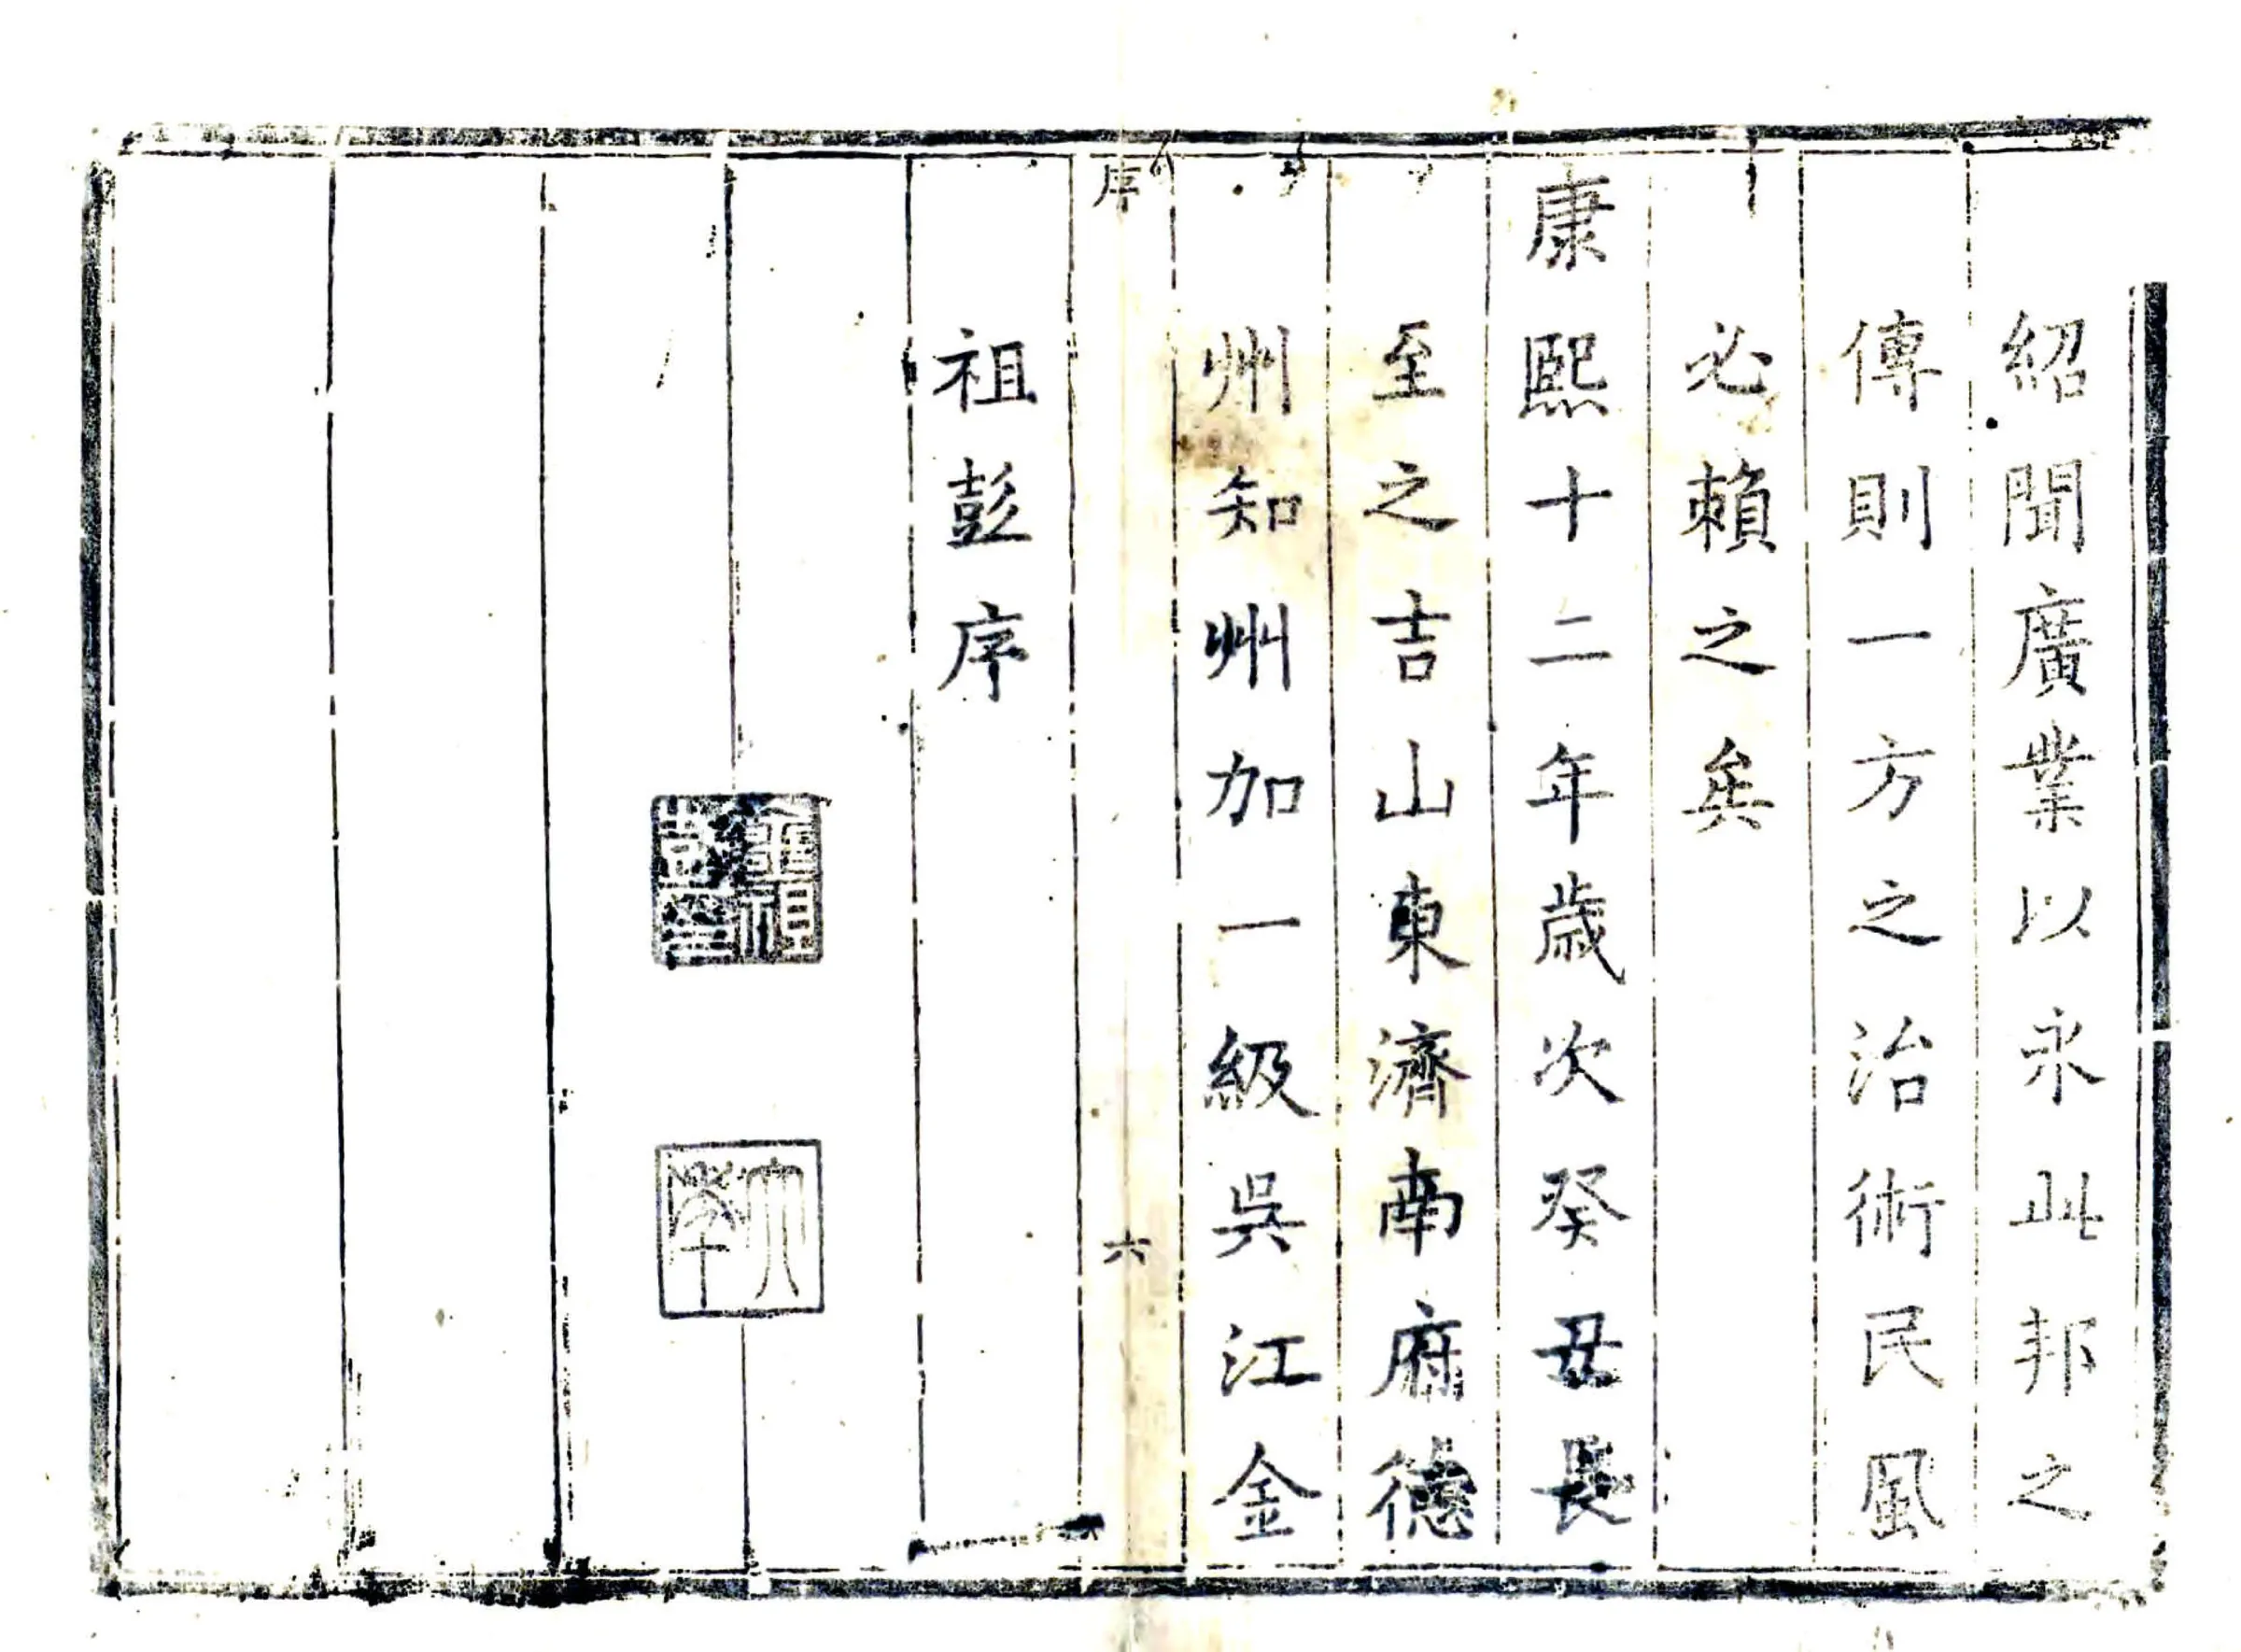 紹聞廣業以永此邦之
傳則一方之治術民風
必賴之矣
康熙十二年歲次癸丑長
至之吉山東濟南府德
州知州加一級吳江金
序
六
祖彭序
金祖彭印
大年